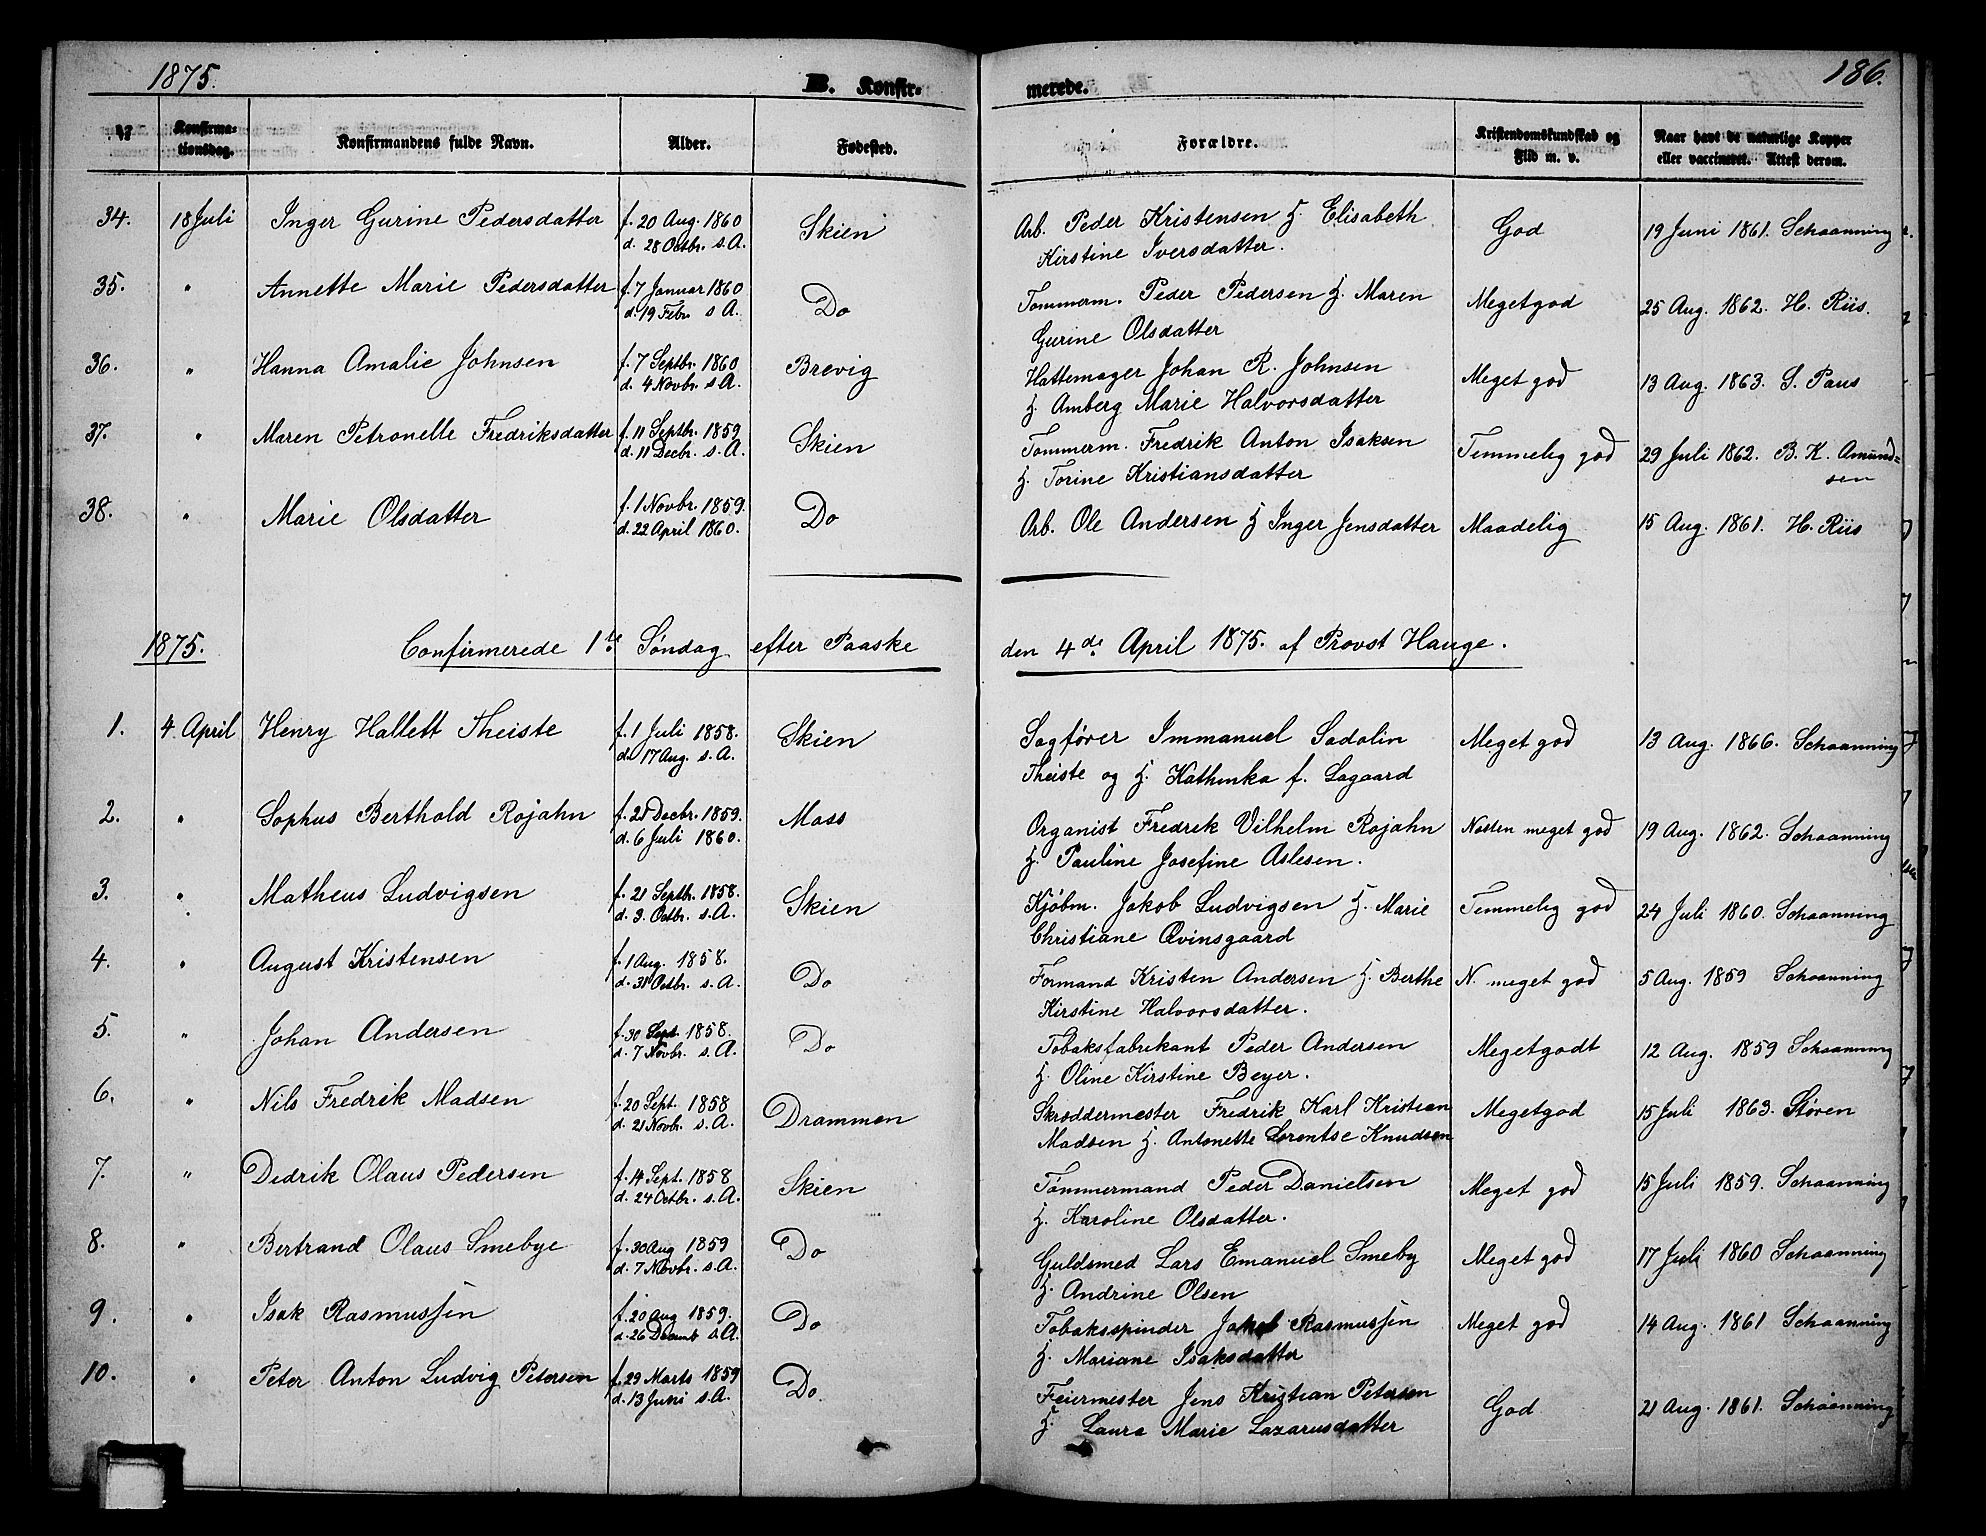 1875.
B. Konfir-
merede.
186.
№
Konfirma-
tionsdag.
Konfirmandens fulde Navn.
Alder.
Fødested.
Forældre.
Kristendomskundskab og
Flid m. v.
Naar havt de naturlige Kopper
eller vaccineret. Attest derom.
34. 18 Juli Inger Gurine Pedersdatter f. 20 Aug. 1860 Skien Arb. Peder Kristensen H. Elisabeth God 19 Juni 1861. Schaanning
d. 28 Octbr. s. A. Kirstine Iversdatter.
35. " Annette Marie Pedersdatter f. 7 Januar 1860 Do Tommerm. Peder Pedersen H. Maren Megetgod 25 Aug. 1862. H. Riis.
d. 19 Febr. s A. Gurine Olsdatter
36. " Hanna Amalie Johnsen f. 7 Septbr. 1860 Brevig Hattemager Johan R. Johnsen Meget god 13 Aug. 1863. S. Paus
d. 4 Novbr. s. A. H. Amberg Marie Halvorsdatter
37. " Maren Petronelle Fredriksdatter f. 11 Septbr. 1859 Skien Tommerm. Fredrik Anton Isaksen Temmelig god 29 Juli 1862. B. K. Amund=
d. 11 Decbr. s. A. H. Torine Kristiansdatter sen
38. " Marie Olsdatter f. 1 Novbr. 1859. Do Arb. Ole Andersen H Inger Jensdatter Maadelig 15 Aug. 1861. H. Riis
d. 22 April 1860.
1875. Confirmerede 1te Søndag efter Paaske den 4de April 1875. af Provst Hauge.
1. 4 April Henry Hallett Theiste f. 1 Juli 1858. Skien Sagfører Immanuel Sadolin Meget god 13 Aug. 1866. Schaanning
d. 17 Aug. s. A. Theiste og H. Kathinka f. Lagaard
2. " Sophus Berthold Rojahn f. 21 Decbr. 1859. Moss Organist Fredrik Vilhelm Rojahn Næsten meget god 19 Aug. 1862. Schaanning
d. 6 Juli 1860. H. Pauline Josefine Aslesen.
3. " Matheus Ludvigsen f. 21 Septbr. 1858. Skien Kjøbm. Jakob Ludvigsen H. Marie Temmelig god 24 Juli 1860. Schaanning
d. 3. Octbr. s. A. Christiane Qvinsgaard
4. " August Kristensen f. 1 Aug. 1858. Do Formand Kristen Andersen H. Berthe N. meget god 5 Aug. 1859 Schaanning
d. 31 Octbr. s. A. Kirstine Halvorsdatter.
5. " Johan Andersen f. 30 Sept. 1858. Do Tobaksfabrikant Peder Andersen Megetgodt 12 Aug. 1859 Schaanning
d. 7 Novbr. s. A. H. Oline Kirstine Beyer.
6. " Nils Fredrik Madsen f. 20 Sept. 1858 Drammen Skræddermester Fredrik Karl Kristian Megetgod 15 Juli 1863. Støren
d. 21 Novbr. s. A. Madsen H. Antonette Lorentse Knudsen
7. " Dedrik Olaus Pedersen f. 14 Sept. 1858 Skien Tømmermand Peder Danielsen Meget god 15 Juli 1859. Schaanning
d. 24 Octbr. s. A. H. Karoline Olsdatter.
8. " Bertrand Olaus Smebye f. 30 Aug 1859 Do Guldsmed Lars Emanuel Smeby Meget god 17 Juli 1860 Schaanning
d. 7 Novbr. s. A. H. Andrine Olsen
9. " Isak Rasmussen f. 20 Aug 1859. Do Tobaksspinder Jakob Rasmussen Meget god 14 Aug. 1861 Schaanning
d. 26 Decemb s. A. H. Mariane Isaksdatter
10. " Peter Anton Ludvig Petersen f. 29 Marts 1859 Do. Feiermester Jens Kristian Petersen God 21 Aug. 1861. Schaanning
d. 13 Juni s. A. H. Laura Marie Lazarusdatter